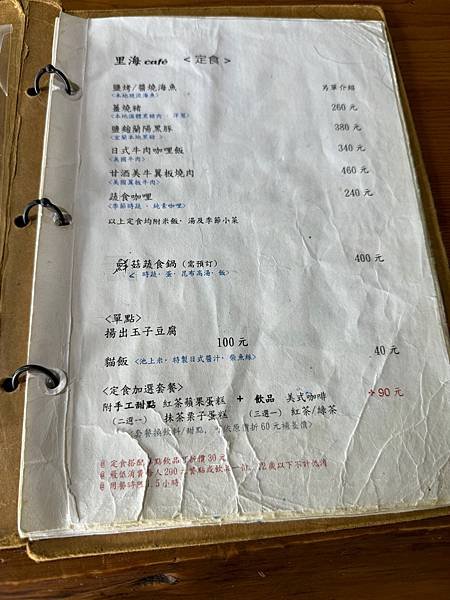 里海 café <定食>
鹽烤/醬燒海魚 另單介紹
<本地現流海魚>
薑燒豬 260 元
<本地溫體黑豬肉、洋蔥>
鹽麴蘭陽黑豚 380 元
<宜蘭本地黑豬>
日式牛肉咖哩飯 340 元
<美國牛肉>
甘酒美牛翼板燒肉 460 元
<美國翼板牛肉>
蔬食咖哩 240 元
<季節時蔬、純素咖哩>
以上定食均附米飯、湯及季節小菜
鮮菇蔬食鍋(需預訂) 400 元
<時蔬、蛋、昆布高湯、飯>
<單點>
揚出玉子豆腐 100 元
貓飯 <池上米,特製日式醬汁,柴魚絲> 40 元
<定食加選套餐>
附手工甜點 紅茶蘋果蛋糕 + 飲品 美式咖啡 90 元
(二選一) 抹茶栗子蛋糕 (三選一) 紅茶/綠茶
套餐換飲料/甜點,依原價折60元補差價>
@ 定食搭配單點飲品可折價30元
@ 最低消費每人200元餐點或飲品 歲以下不計低消
@ 用餐時間1.5小時